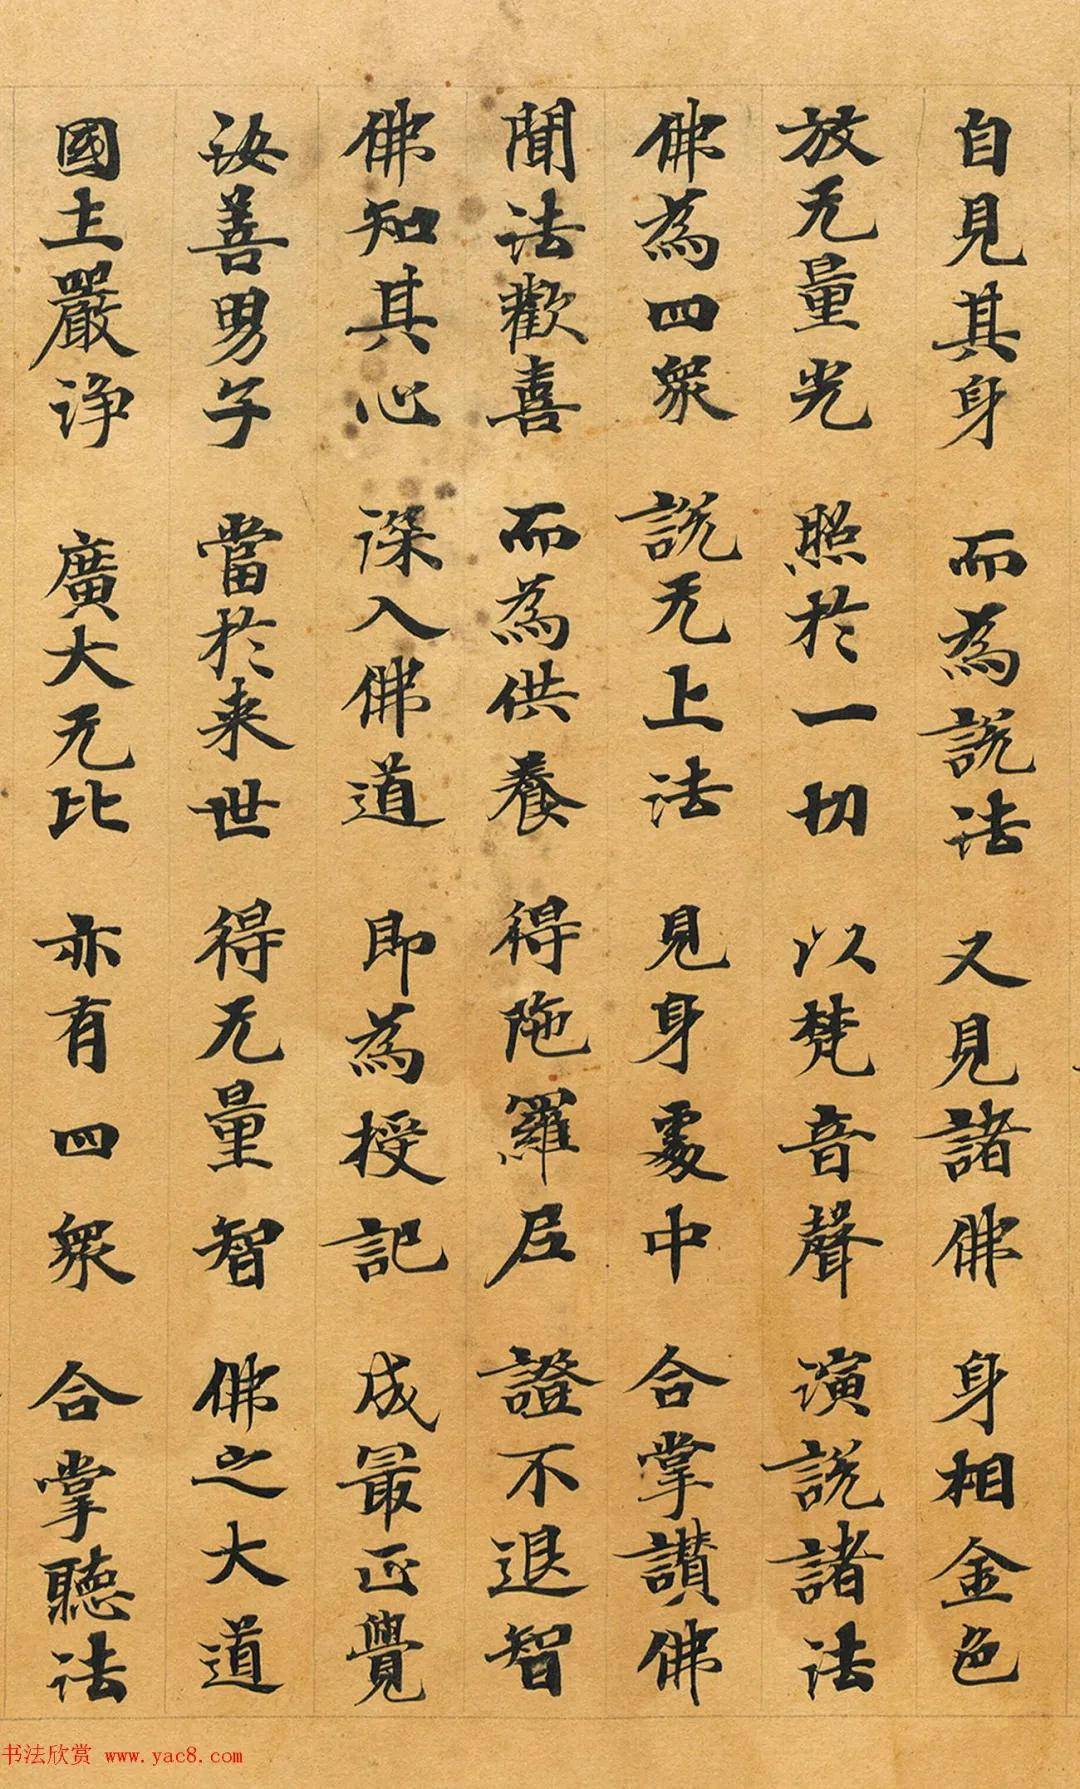 自見其身 而為說法 又見諸佛 身相金色
放无量光 照於一切 以梵音聲 演說諸法
佛為四眾 說无上法 見身處中 合掌讃佛
聞法歡喜 而為供養 得陁羅尼 證不退智
佛知其心 深入佛道 即為授記 成最正覺
汝善男子 當於来世 得无量智 佛之大道
國土嚴淨 廣大无比 亦有四眾 合掌聽法
书法欣赏 www.yac8.com